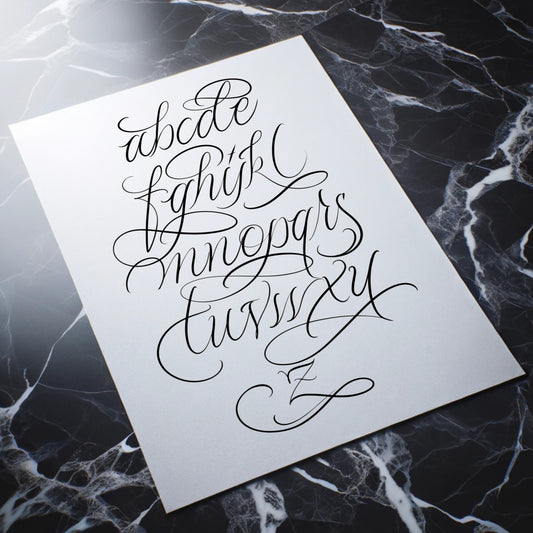 abcde
fghijkl
mnopqrs
tuvwxy
z